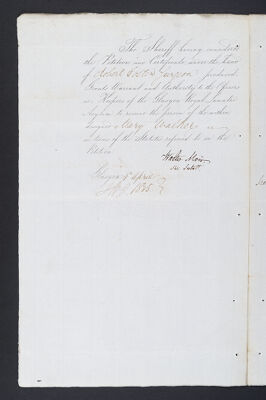 The Sheriff having considered
the Petition and Certificate under the hand
of Robert
Grants Warrant and Authority to the
or Keepers of the Glasgow Royal Lunatic
Asylum to receive the person of the within
designed Mary Walker in
terms of the Statutes referred to in the
Petition
Walter Moir
Glasgow 5 April
1855